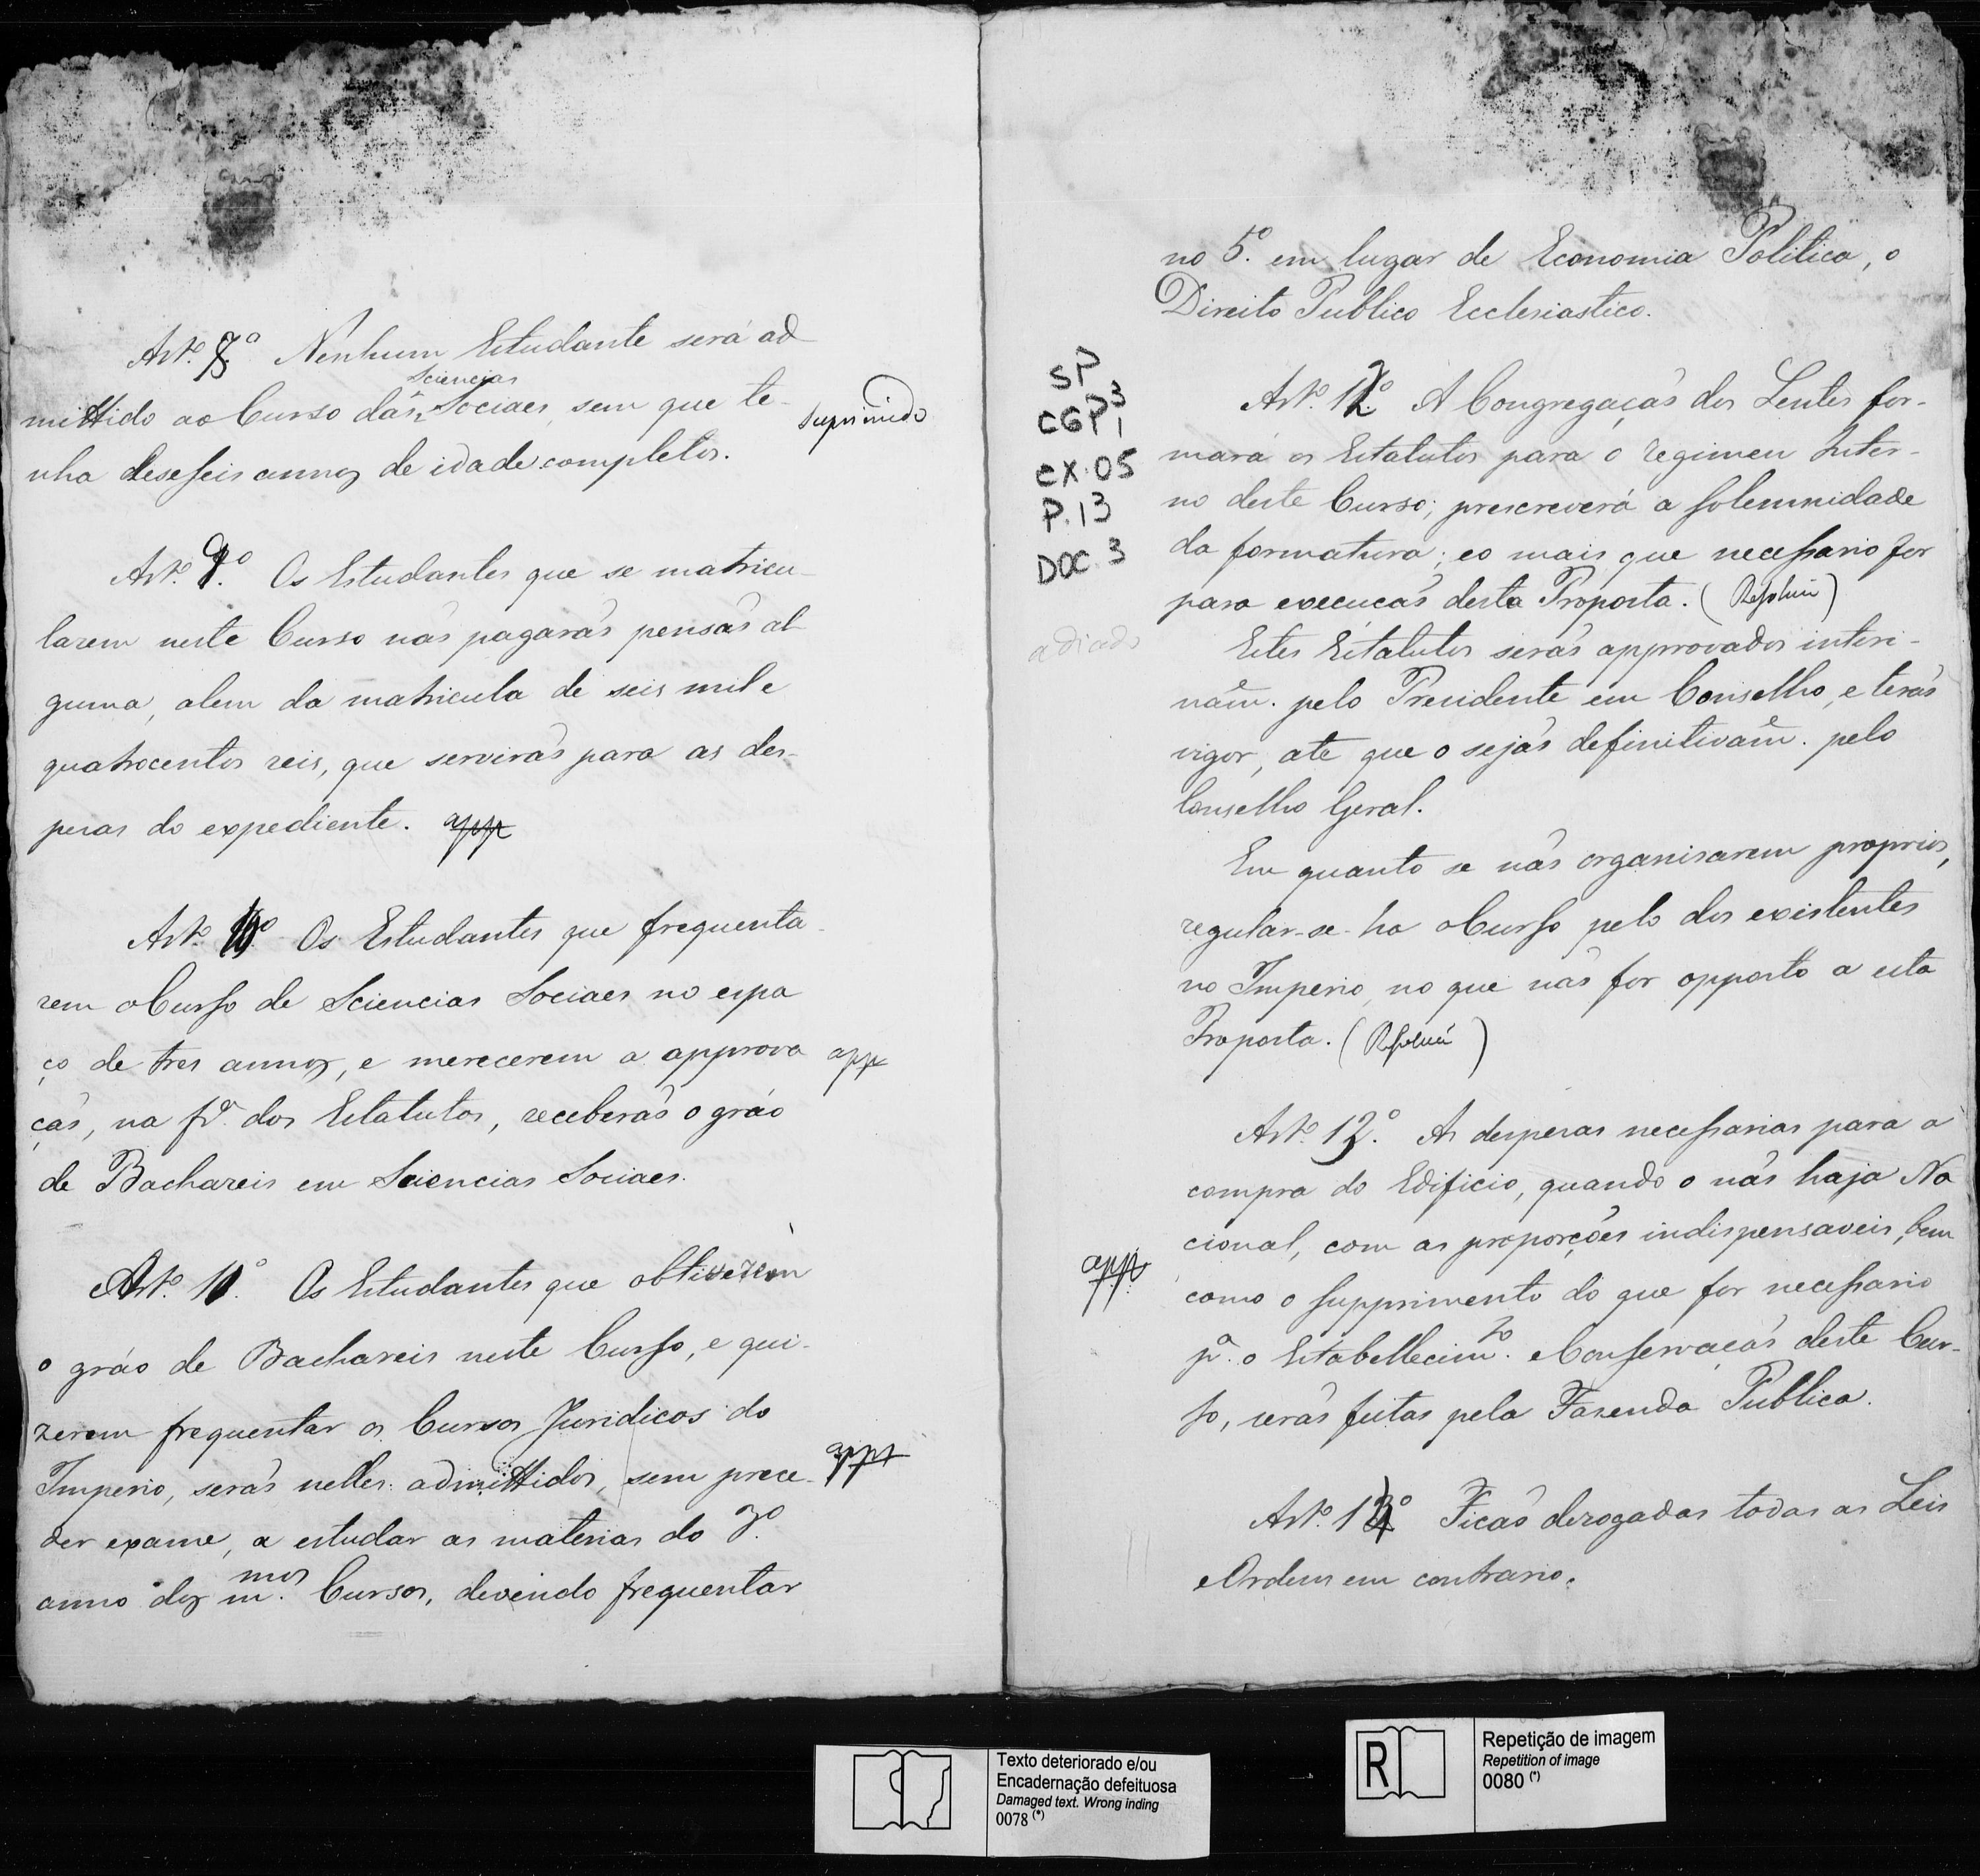 Art.º 8.º Nenhum Estudante será ad
mittido ao Curso das Sciencias Sociaes, sem que te-
nha deseseis annos de idade completos.
suprimido
Art.º 9.º Os Estudantes que se matricu-
larem neste Curso não pagarão pensão al-
guma, alem da matricula de seis mil e
quatrocentos reis, que servirão para as des-
pesas do expediente. app
Art.º 10.º Os Estudantes que frequenta-
rem o Curso de Sciencias Sociaes no espa
ço de tres annos, e merecerem a approva
app
ção, na fr.ª dos Estatutos, receberão o gráo
de Bachareis em Sciencias Sociaes.
Art.º 11.º Os Estudantes que obtiverem
o gráo de Bachareis neste Curso, e qui-
zerem frequentar os Cursos Juridicos do
Imperio, serão nelles admittidos, sem prece-
app
der exame, a estudar as materias do 3.º
anno dos m.mos Cursos, devendo frequentar
no 5.º em lugar de Economia Politica, o
Direito Publico Ecclesiastico.
SP
CGP3
1
CX.05
P.13
DOC.3
Art.º 12.º A Congregação dos Lentes for-
mará os Estatutos para o regimen Inter-
no deste Curso; prescreverá a solemnidade
da formatura; e o mais que necessario for
para execução desta Proposta. ( )
adiado
Estes Estatutos serão approvados interi-
nam.e pelo Presidente em Conselho, e terão
vigor, até que o sejão definitivam.e pelo
Conselho Geral.
Em quanto se não organisarem proprios,
regular-se-ha o Curso pelo dos existentes
no Imperio, no que não for opposto a esta
Proposta. ( )
Art.º 13.º As despesas necessarias para a
compra do Edificio, quando o não haja Na
cional, com as proporções indispensaveis, bem
app
como o supprimento do que for necessario
p.ª o Estabellecim.to e Conservação deste Cur-
so, serão feitas pela Fasenda Publica.
Art.º 14.º Ficão derogadas todas as Leis
e Ordens em contrario.
Texto deteriorado e/ou
Encadernação defeituosa
Damaged text. Wrong inding
0078 (*)
R
Repetição de imagem
Repetition of image
0080 (*)